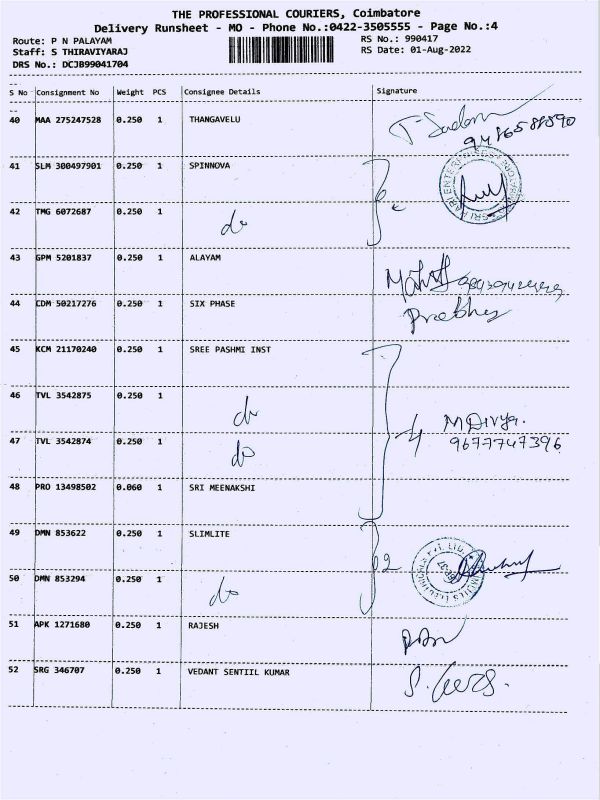 THE PROFESSIONAL COURIERS, Coimbatore
Delivery Runsheet - MO - Phone No.:0422-3505555 - Page No.:4
Route: P N PALAYAM
Staff: S THIRAVIYARAJ
DRS No.: DCJB99041704
RS No.: 990417
RS Date: 01-Aug-2022
S No Consignment No Weight PCS Consignee Details Signature
40 MAA 275247528 0.250 1 THANGAVELU
41 SLM 300497901 0.250 1 SPINNOVA
42 TMG 6072687 0.250 1 do
43 GPM 5201837 0.250 1 ALAYAM
44 CDM 50217276 0.250 1 SIX PHASE Prebhy
45 KCM 21170240 0.250 1 SREE PASHMI INST
46 TVL 3542875 0.250 1 do M Divya.
47 TVL 3542874 0.250 1 do 9677747396
48 PRO 13498502 0.060 1 SRI MEENAKSHI
49 DMN 853622 0.250 1 SLIMLITE
50 DMN 853294 0.250 1 do
51 APK 1271680 0.250 1 RAJESH
52 SRG 346707 0.250 1 VEDANT SENTIIL KUMAR